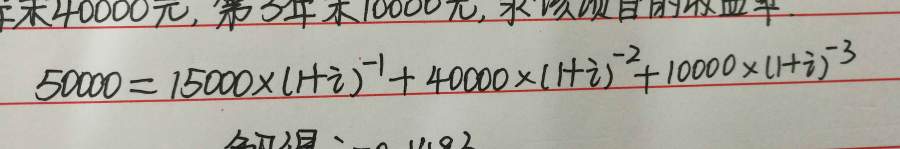 年末40000元, 第3年末10000元, 求该项目的收益率.
50000 = 15000×(1+i)⁻¹ + 40000×(1+i)⁻² + 10000×(1+i)⁻³
解得i